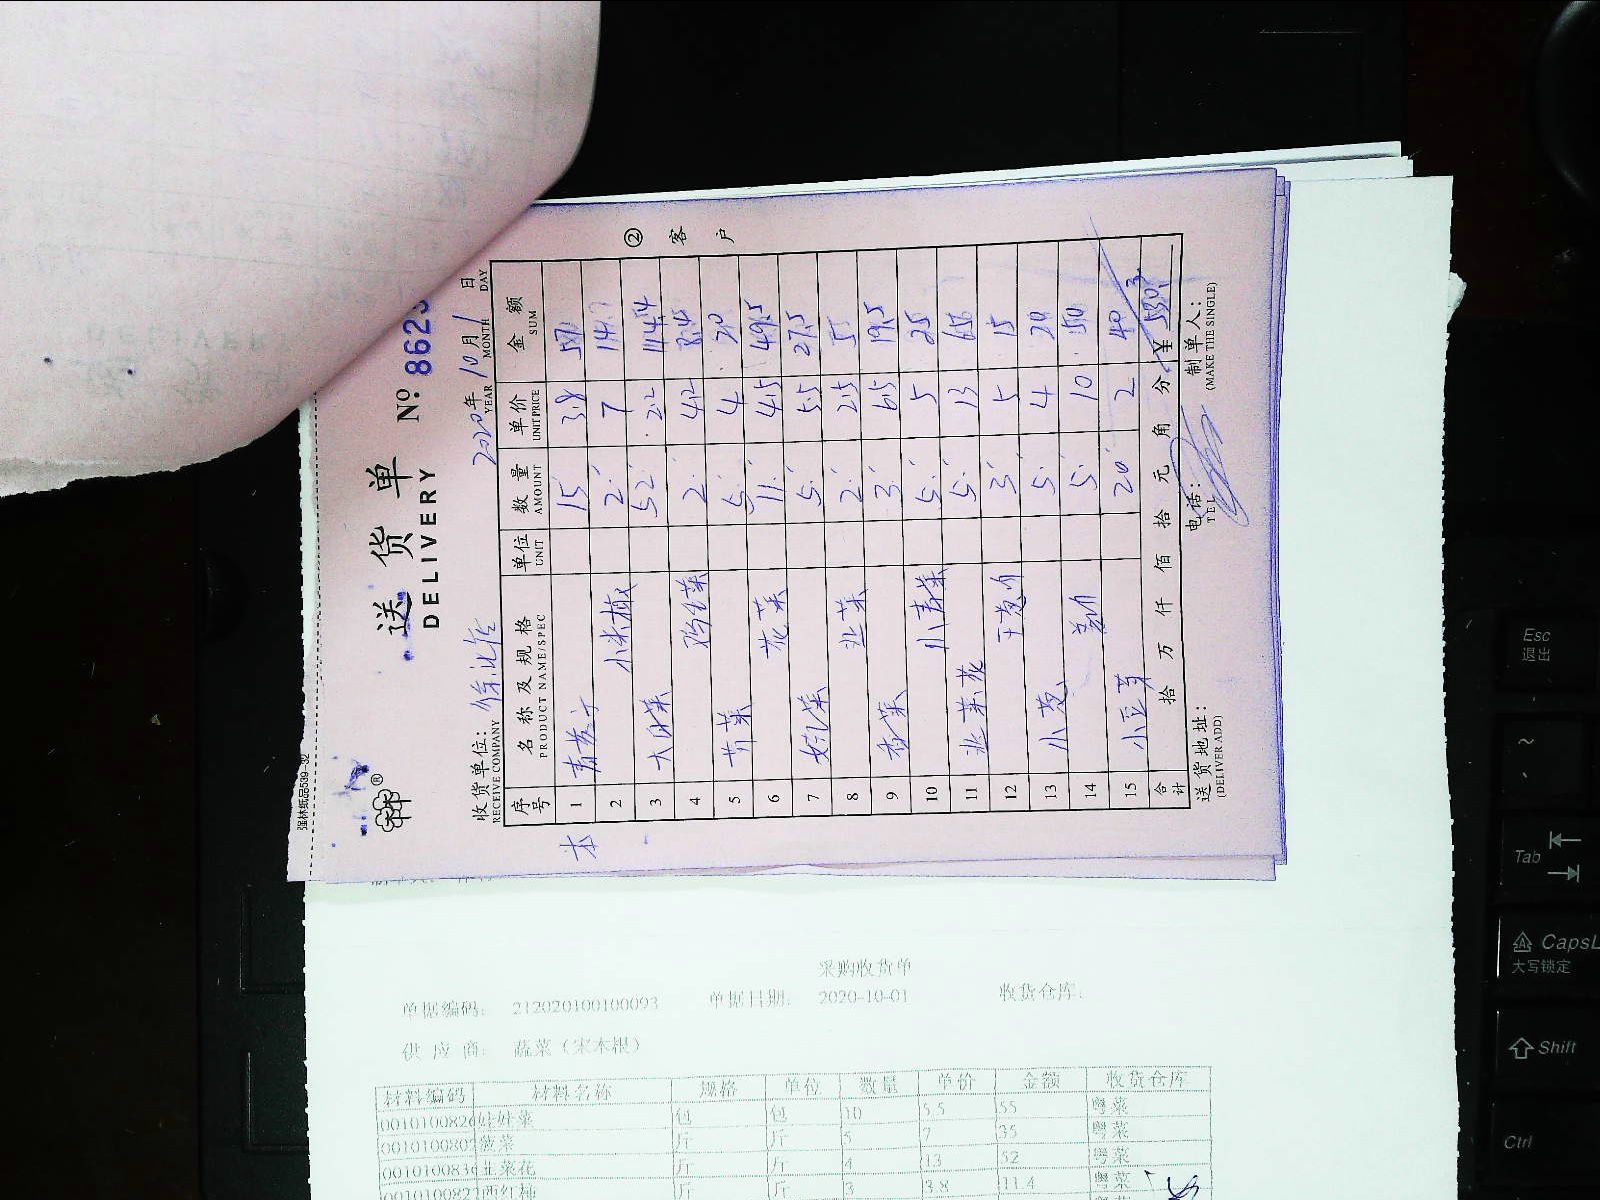 强林纸品539-32
送货单
DELIVERY
№ 862
收货单位:
RECEIVE COMPANY
2020年10月1日
YEAR MONTH DAY
② 客户
序号 名称及规格 单位 数量 单价 金额
PRODUCT NAME/SPEC UNIT AMOUNT UNIT PRICE SUM
1 15 3.8 57
2 小米椒 2 7 14
3 大白菜 52 2.2 114.4
4 2 4.2
5 芹菜 5 4 20
6 花菜 11 4.5 49.5
7 5 5.5 27.5
8 韭菜 2 2.5 5
9 香菜 3 6.5 19.5
10 小青菜 5 5 25
11 韭菜花 5 13 65
12 3 5 15
13 小葱 5 4 20
14 5 10 50
15 小豆芽 20 2 40
合计 拾 万 仟 佰 拾 元 角 分 ¥
送货地址: 电话: 制单人:
(DELIVER ADD) TEL (MAKE THE SINGLE)
采购收货单
单据编码: 212020100100093 单据日期: 2020-10-01 收货仓库:
供应商: 蔬菜(宋本根)
材料编码 材料名称 规格 单位 数量 单价 金额 收货仓库
娃娃菜 包 包 10 5.5 55 粤菜
菠菜 斤 斤 5 7 35 粤菜
韭菜花 斤 斤 4 13 52 粤菜
西红柿 斤 斤 3 3.8 11.4 粤菜
Esc
退出
~
Tab
CapsL
大写锁定
Shift
Ctrl